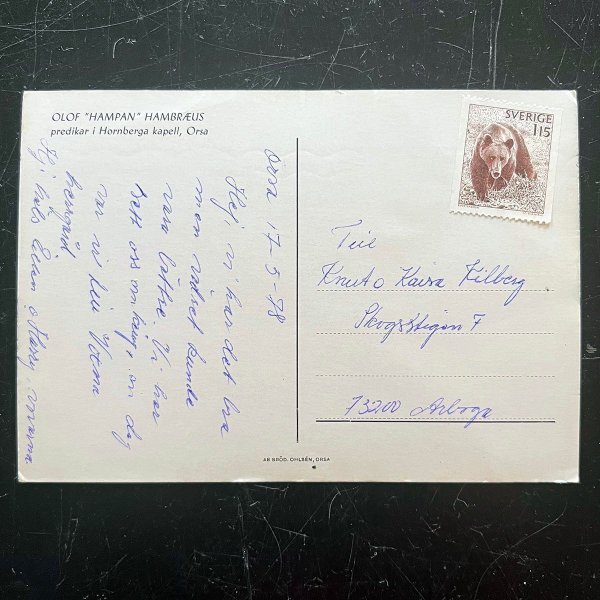 OLOF "HAMPAN" HAMBRÆUS
predikar i Hornberga kapell, Orsa
Orsa 17-5-78
Hej, vi har det bra
men vädret kunde
vara bättre. Vi har
sett oss omkring, en dag
var vi
Hej
SVERIGE
115
Till
Knut o Kaisa Kilberg
Skogsstigen 7
73200 Arboga
AB BRÖD. OHLSÉN, ORSA